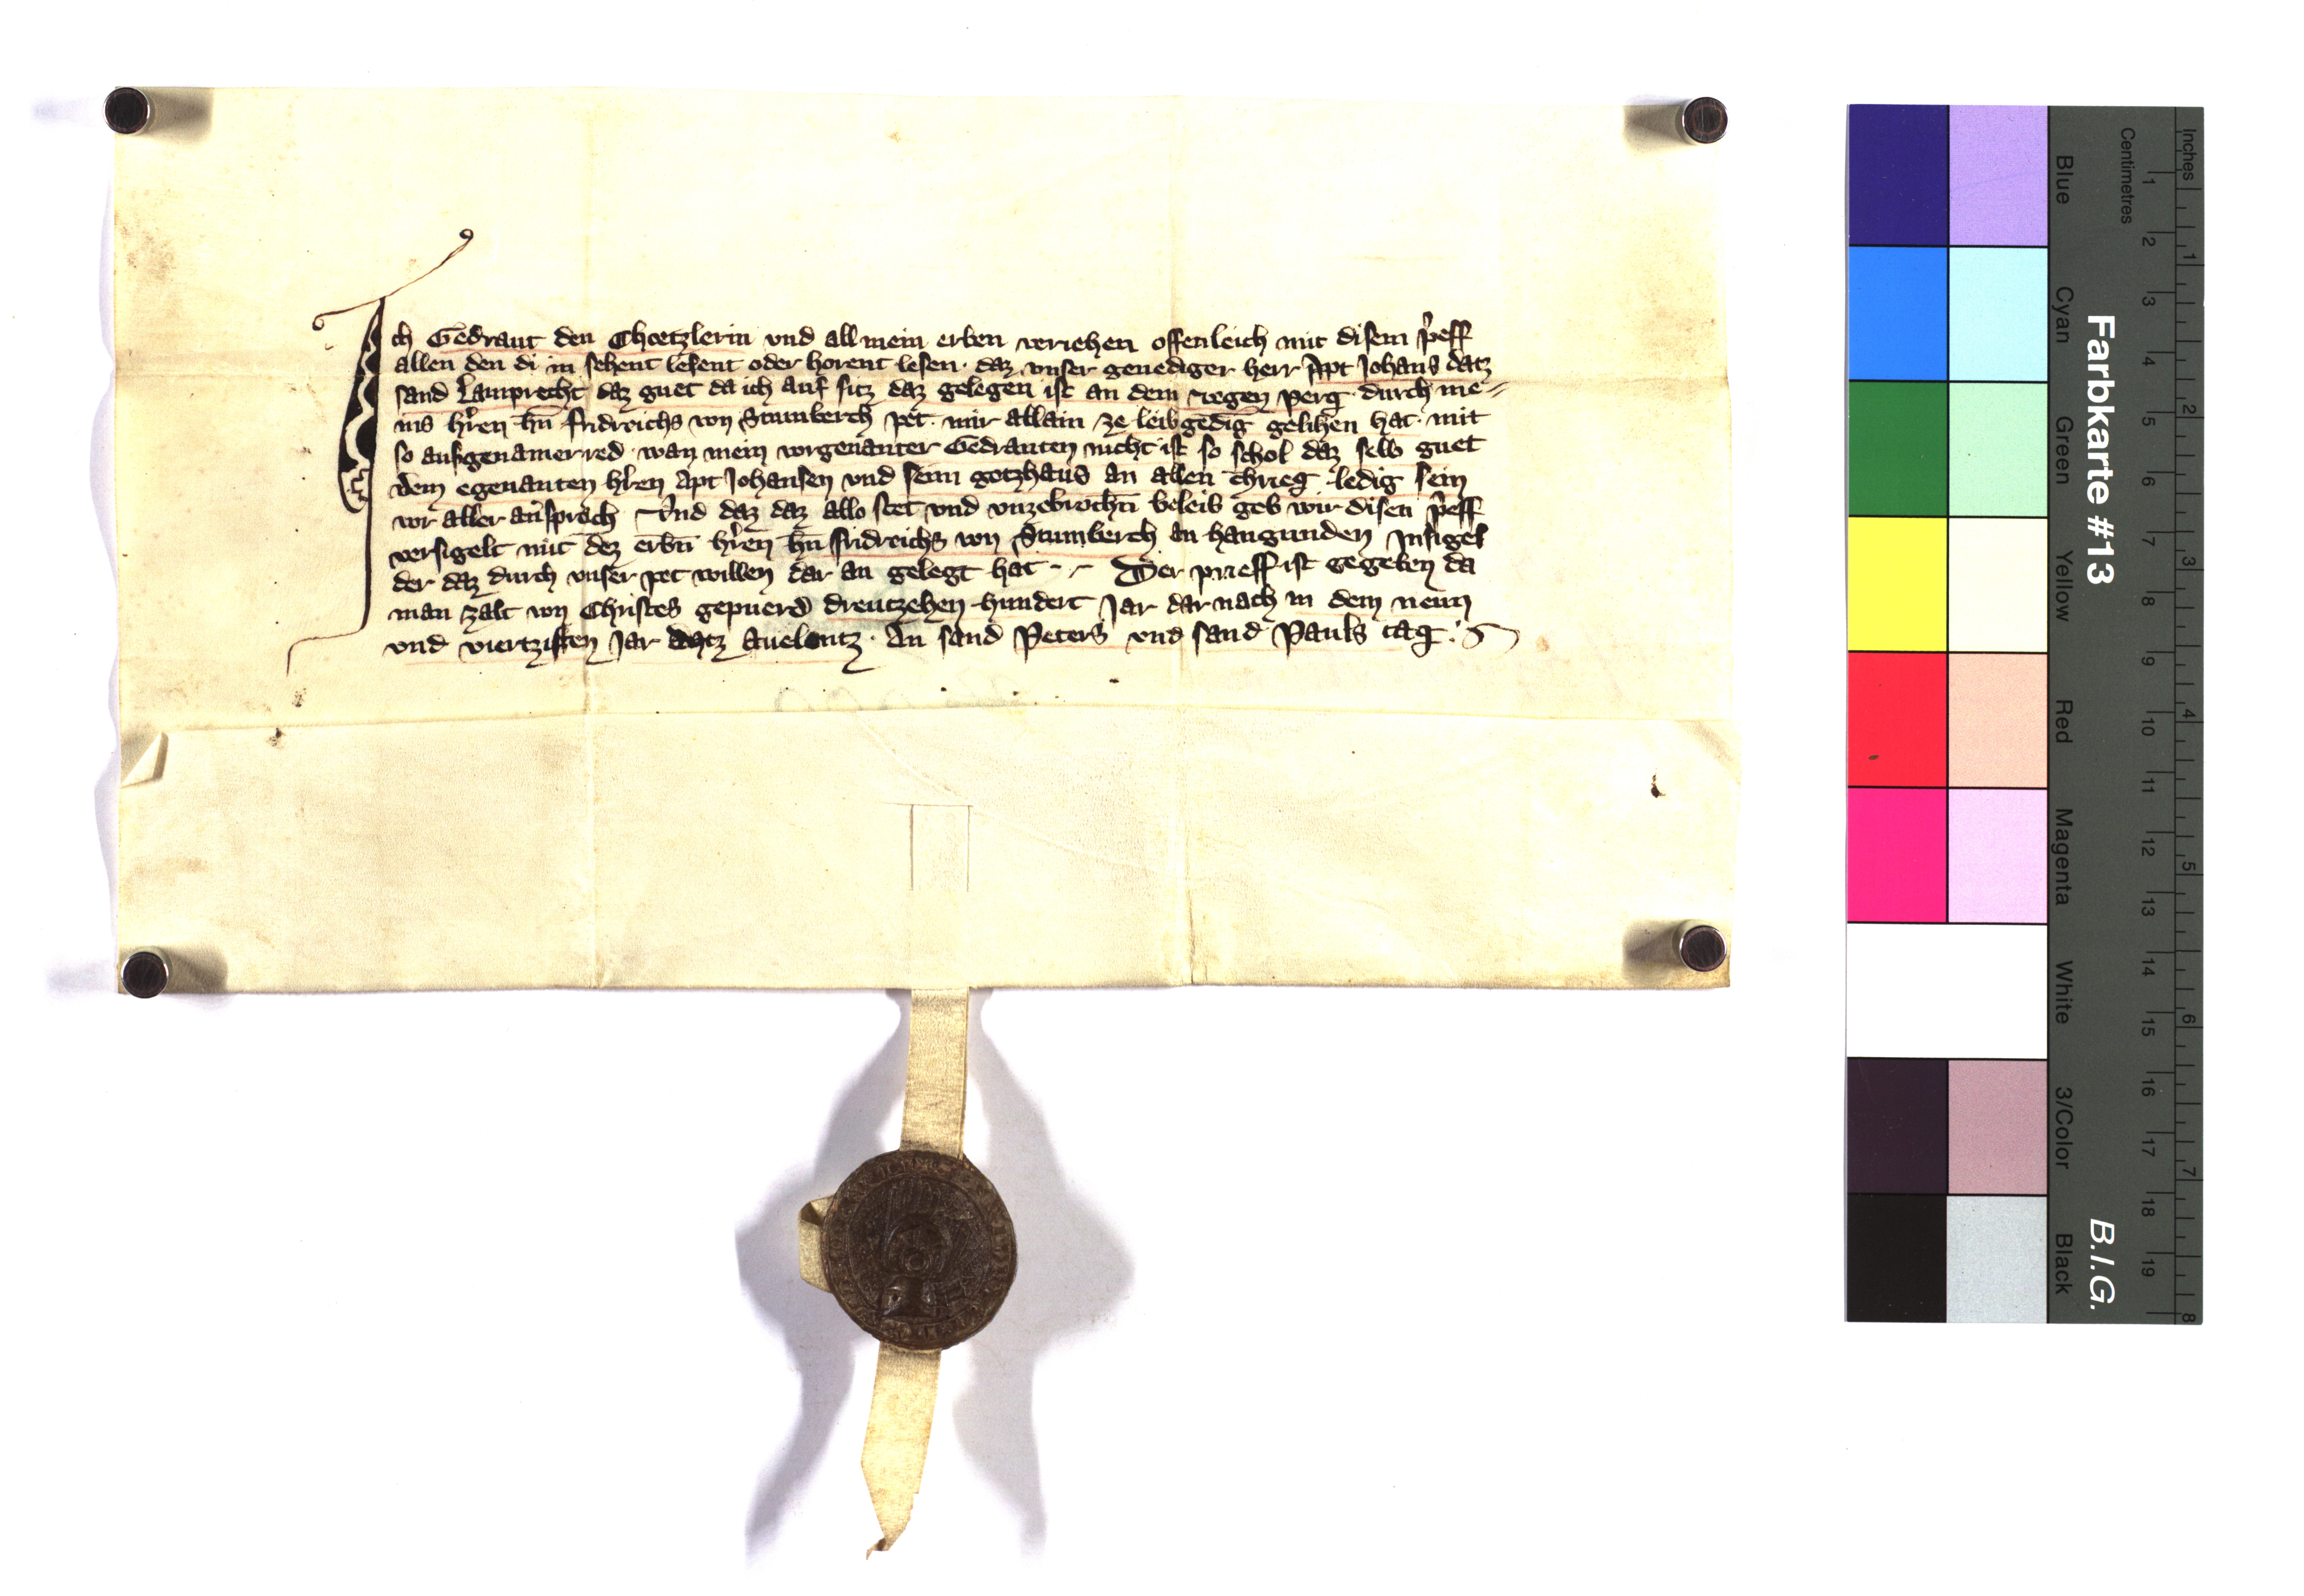 Ich Gedraut den Choetzlerin und all mein erben veriehen offenleich mit disem p̂eff
allen den di in sehent lesent oder horent lesen · daz unser genediger herr Apt Johans datz
sand Lamprecht daz guet da ich auf sitz daz gelegen ist an dem regen perg · durch me⸗
ins hr̂en hn̄ fridreichs von Stumberch pet · mir allain ze leibgedig gelihen hat · mit
so ausgenamer red · wan mein vorgenanter Gedrauten nicht ist so schol daz selb guet
dem egenanten hr̂en Apt Johansen und seim gotzhaus an allen chrieg ledig sein
vor aller ansprach Vnd daz daz allo stet und unzebrochn̄ beleib geb wir disen p̂eff
versigelt mit dez erbn̄ hr̂en hn̄ fridreichs von Stumberch an hangunden Insigel
der daz durch unser pet willen dar an gelegt hat - Der prieff ist gegeben da
man zalt von Christes gepuerd dreutzehen hundert Jar dar nach in dem neun
und viertzisten Jar datz Auelentz · An sand Peters und sand Pauls tag ·
Farbkarte #13
B.I.G.
Inches 1 2 3 4 5 6 7 8
Centimetres 1 2 3 4 5 6 7 8 9 10 11 12 13 14 15 16 17 18 19
Blue Cyan Green Yellow Red Magenta White 3/Color Black